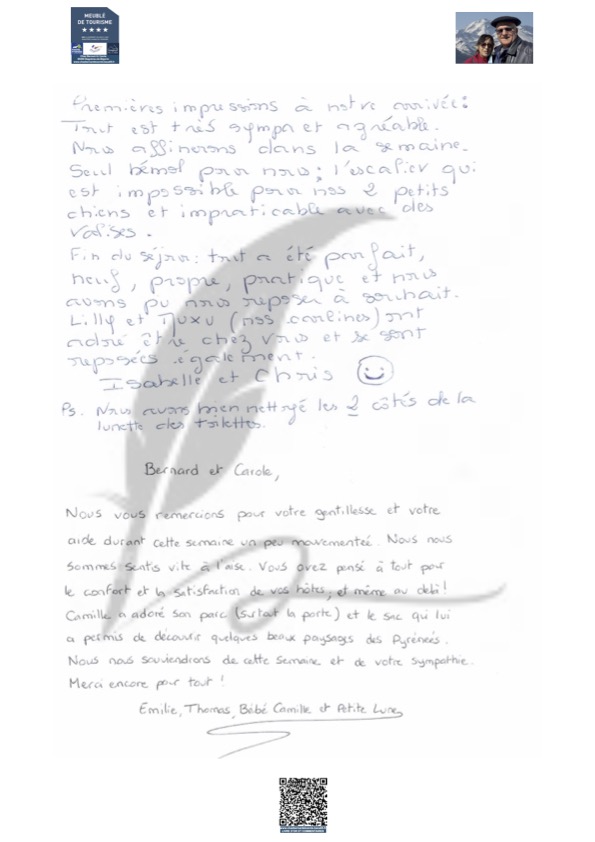 MEUBLÉ
DE TOURISME
★★★★
Premières impressions à notre arrivée:
Tout est très sympa et agréable.
Nous affinerons dans la semaine.
Seul bémol pour nous; l'escalier qui
est impossible pour nos 2 petits
chiens et impraticable avec des
valises.
Fin du séjour: tout a été parfait,
neuf, propre, pratique et nous
avons pu nous reposer à souhait.
Lilly et (nos carlines) ont
adoré être chez vous et se sont
reposées également.
Isabelle et Chris
Ps. Nous avons bien nettoyé les 2 côtés de la
lunette des toilettes.
Bernard et Carole,
Nous vous remercions pour votre gentillesse et votre
aide durant cette semaine un peu mouvementée. Nous nous
sommes sentis vite à l'aise. Vous avez pensé à tout pour
le confort et la satisfaction de vos hôtes, et même au delà!
Camille a adoré son parc (surtout la porte) et le sac qui lui
a permis de découvrir quelques beaux paysages des Pyrénées.
Nous nous souviendrons de cette semaine et de votre sympathie.
Merci encore pour tout!
Emilie, Thomas, Bébé Camille et Petite Lune